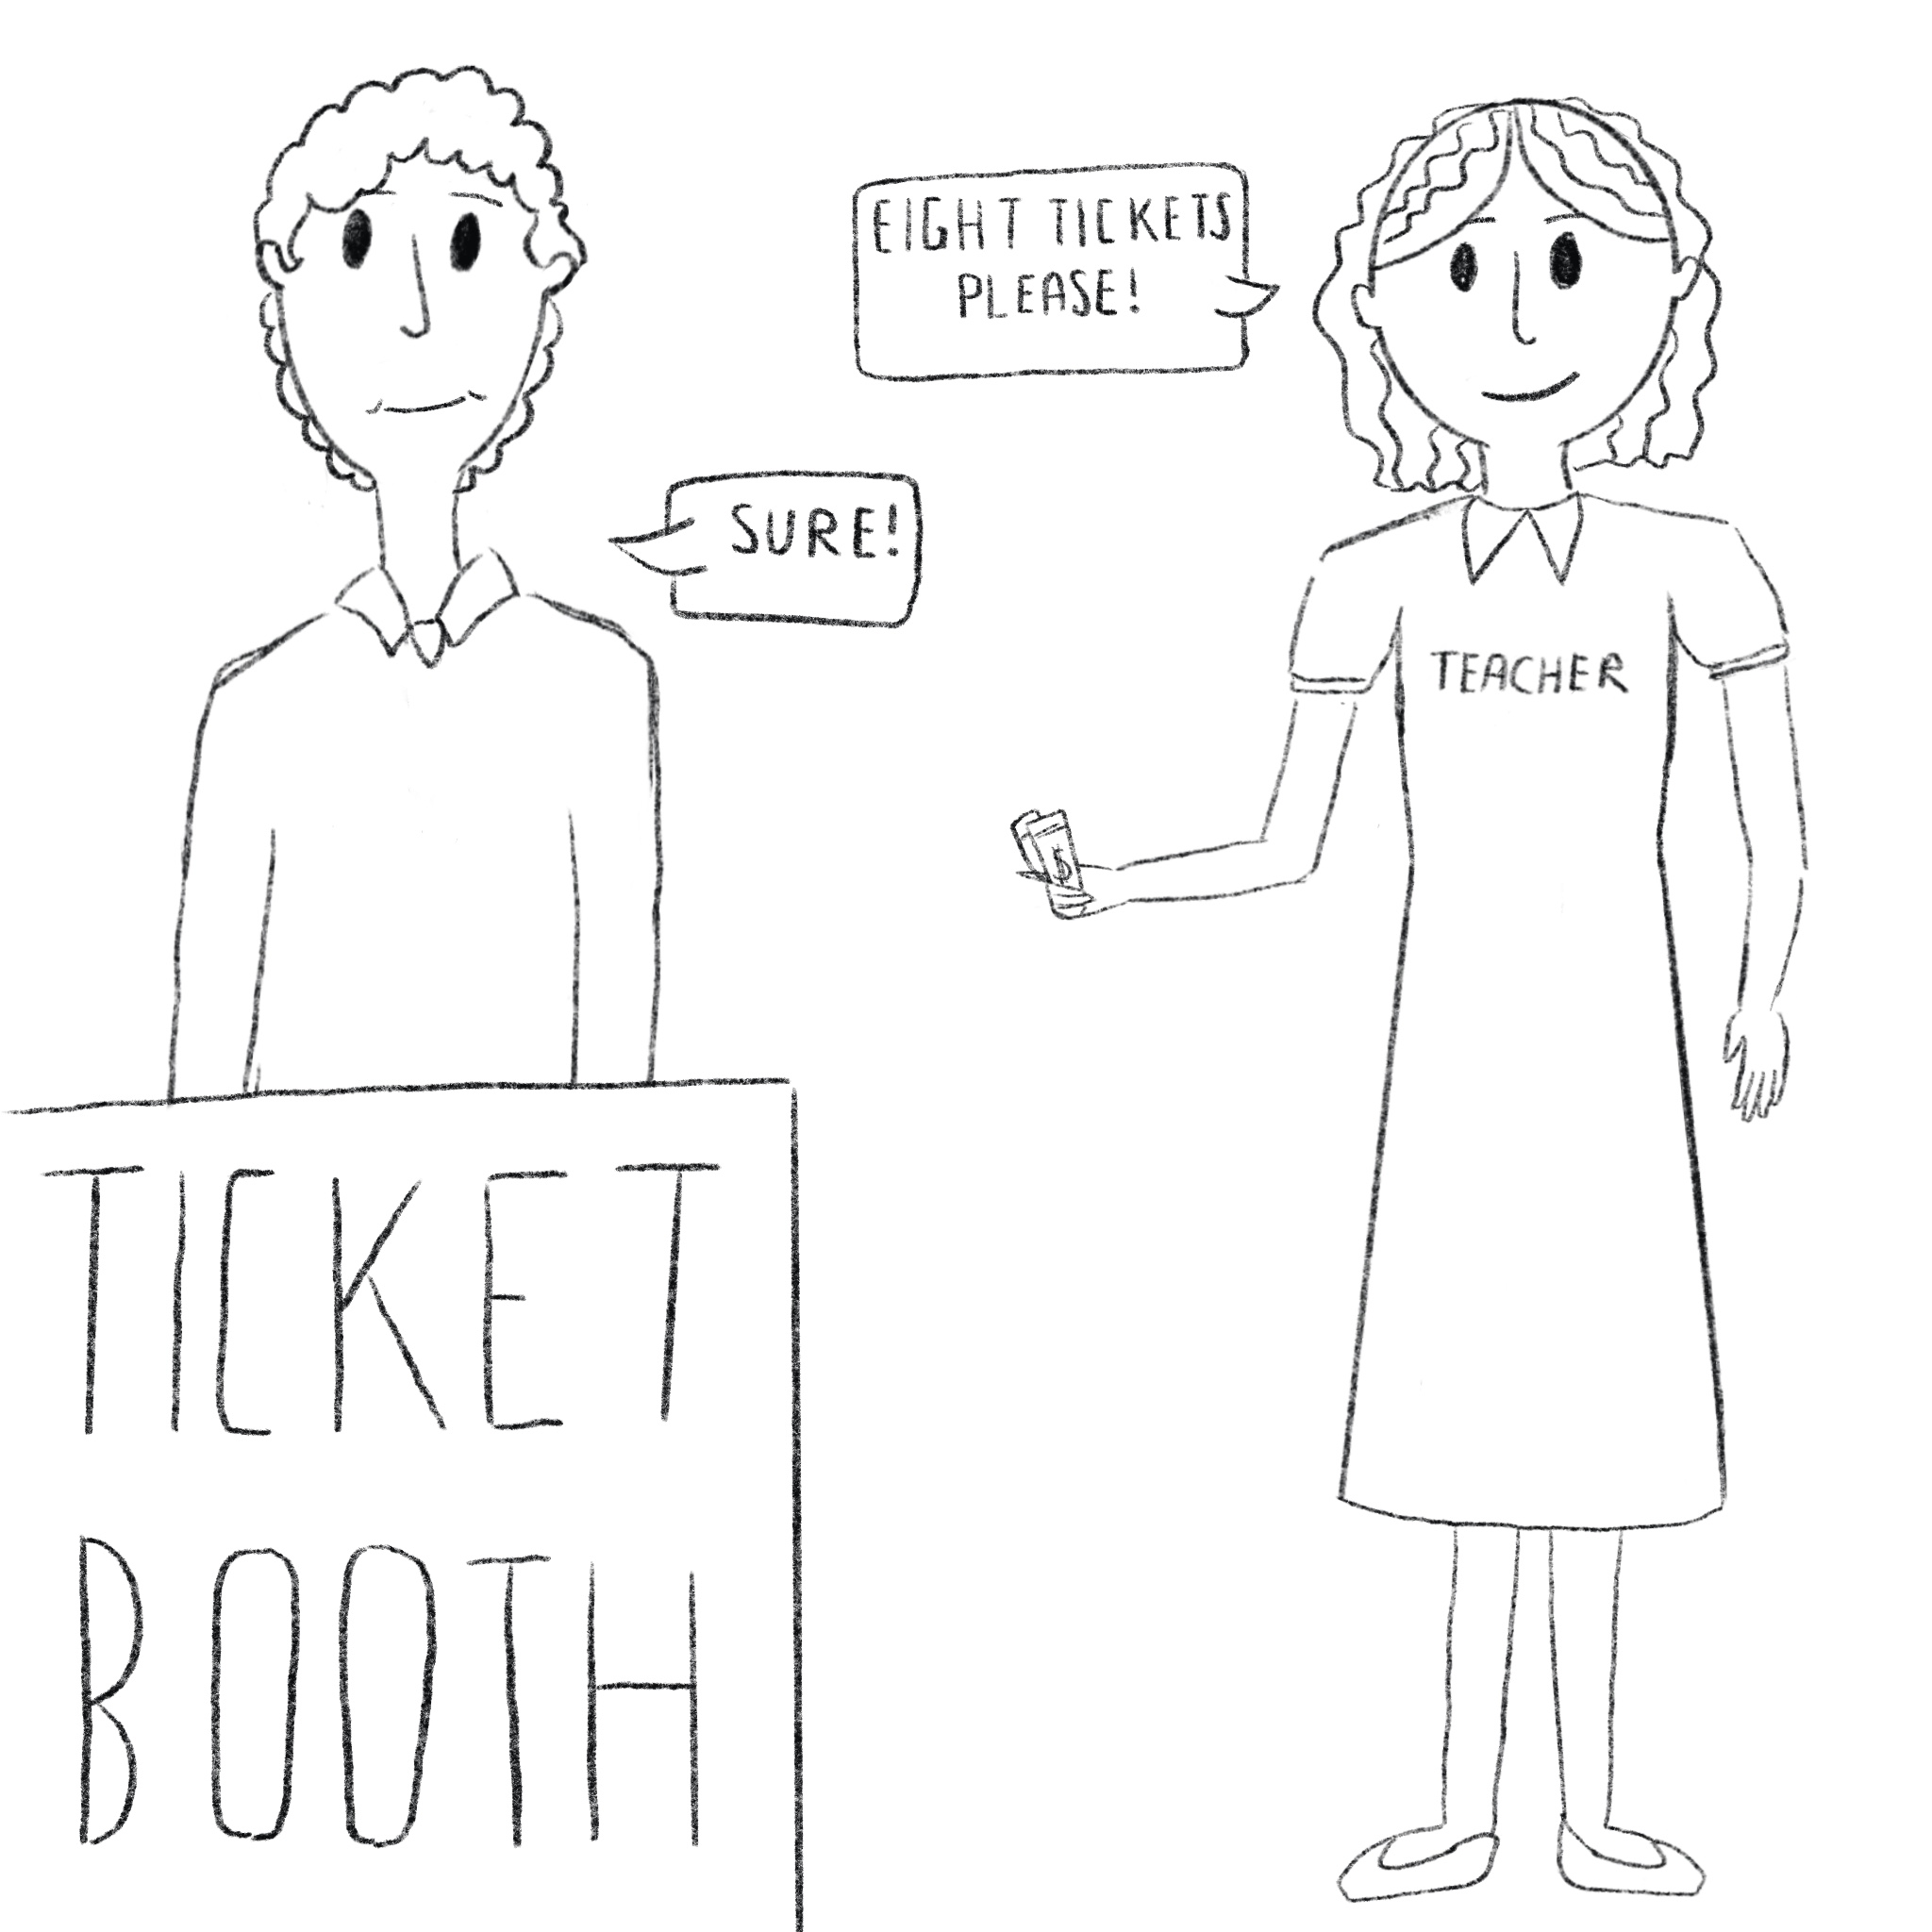 EIGHT TICKETS
PLEASE!
SURE!
TEACHER
$
TICKET
BOOTH